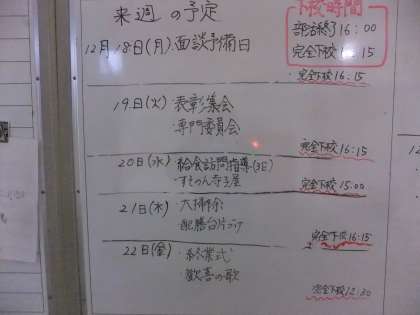 来週の予定
下校時間
部活終了16:00
完全下校16:15
12月18日(月)面談予備日
完全下校16:15
19日(火)・表彰集会
・専門委員会
完全下校16:15
20日(水)・給食訪問指導(3E)
・すそのん寺子屋
完全下校15:00
21日(木)・大掃除
・配膳台片づけ
完全下校16:15
22日(金)・終業式
・歓喜の歌
完全下校12:30